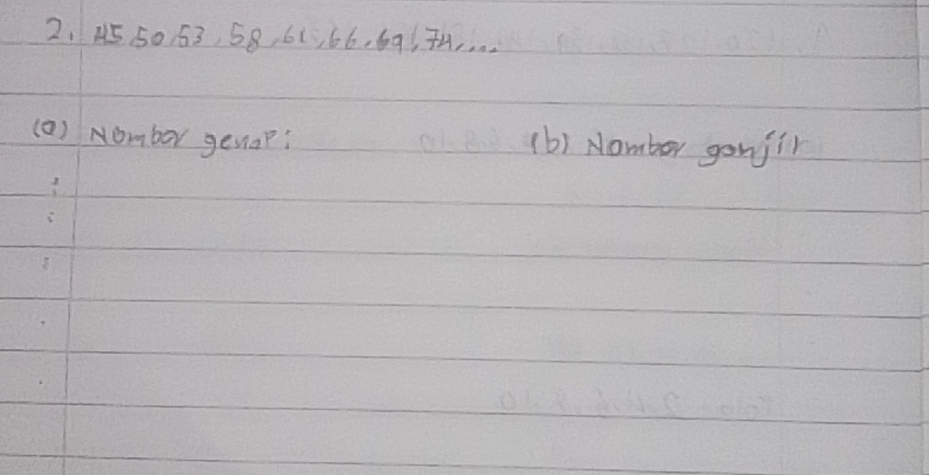 2. 45 50, 53, 58, 61, 66, 69, 74, ...
(a) Nombor genap : (b) Nombor ganjil